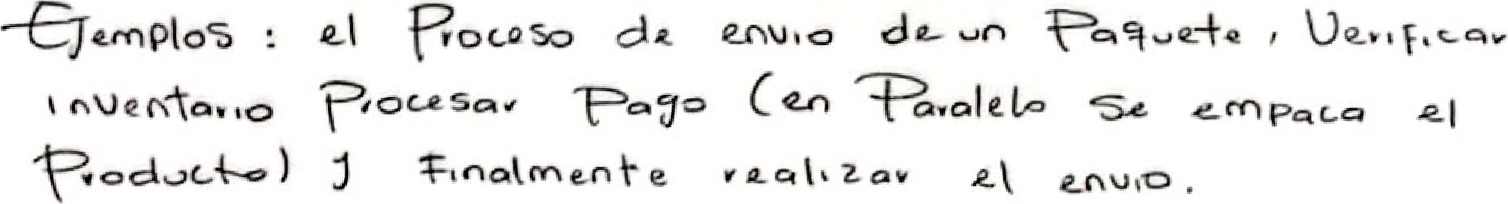 Ejemplos: el Proceso de envio de un Paquete, Verificar
inventario Procesar Pago (en Paralelo se empaca el
Producto) y finalmente realizar el envio.